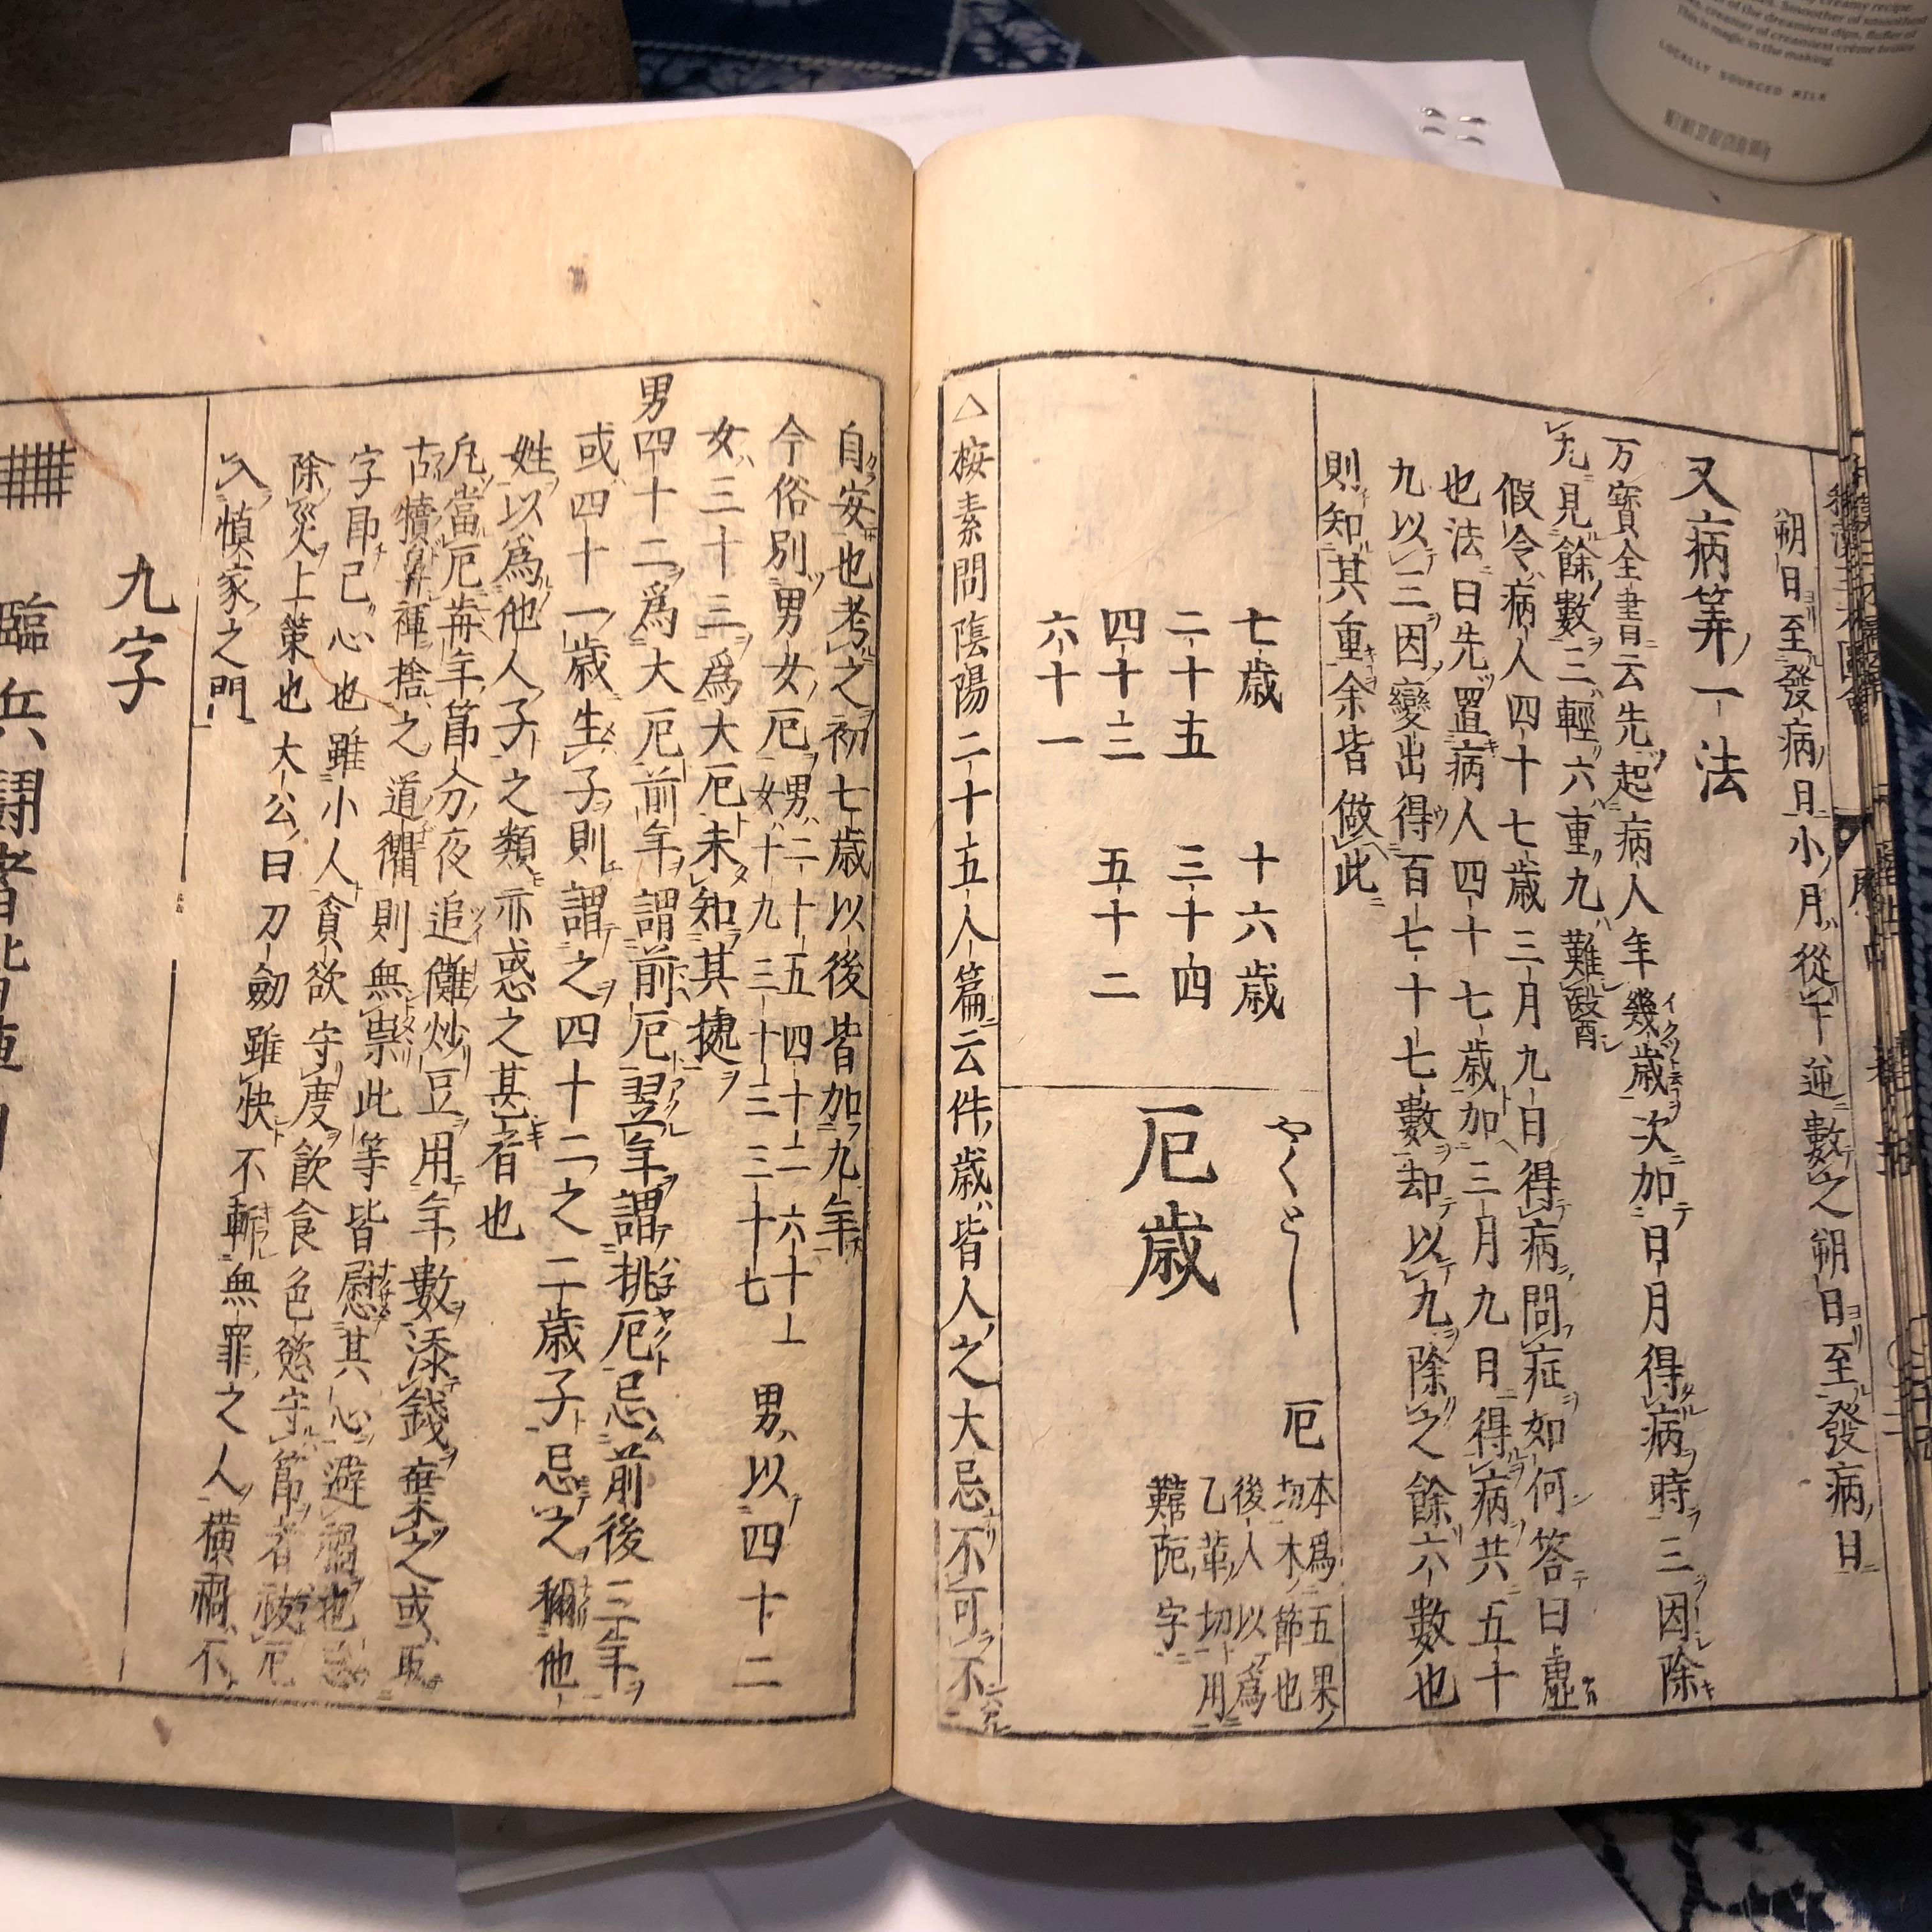 朔日至發病日小月從下逆數之朔日至發病日
又病筭一法
万寳全書云先起病人年幾歳次加日月得病時三因除
九見餘數三輕六重九難醫
假令病人四十七歳三月九日得病問症如何答曰
也法曰先置病人四十七歳加三月九日得病共五十
九以三因變出得百七十七數却以九除之餘六數也
則知其重余皆倣此
七歳 十六歳
二十五 三十四
四十三 五十二
六十一
やくとし
厄歳
厄
本爲五果
木節也
後人以爲
乙革切用
難阨字
△按素問陰陽二十五人篇云件歳皆人之大忌不可不
自安也考之初七歳以後皆加九年
今俗別男女厄
男二十五 四十二 六十一
女十九 三十三 三十七
男以四十二
女三十三爲大厄未知其據
男四十二爲大厄前年謂前厄翌年謂挑厄忌前後三年
或四十一歳生子則謂之四十二之二歳子忌之稱他
姓以爲他人子之類亦惑之甚者也
凡當厄毎年節分夜追儺炒豆用年數添錢棄之或取
古犢鼻褌捨之道衢則無祟此等皆慰其心避禍也
字即己心也雖小人貪欲守度飲食色慾守節者
除災上策也 大公曰刀劒雖快不斬無罪之人横禍不
入慎家之門
九字
臨兵鬪者
LOCALLY SOURCED MILK
of the dreamiest dips, fluffer of
creamer of creamiest crème brûlée
This is magic in the making.